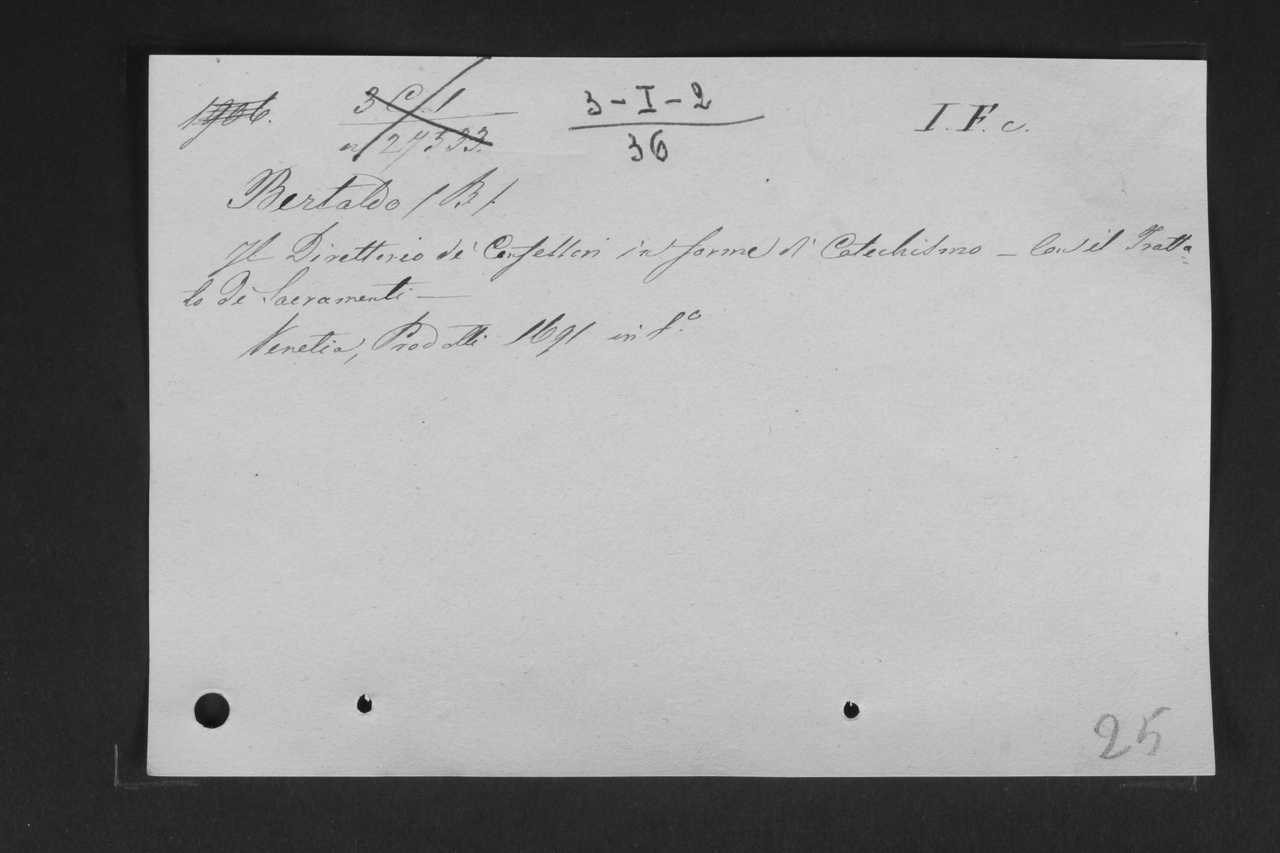 1906. 3 C. 1 3-I-2 I.F.c.
27393. 36
Bertaldo (B).
Il Direttorio de' Confessori in forma di Catechismo – Con il Tratta-
to de' Sacramenti –
Venetia, Prodotti 1691 in 8.º
25